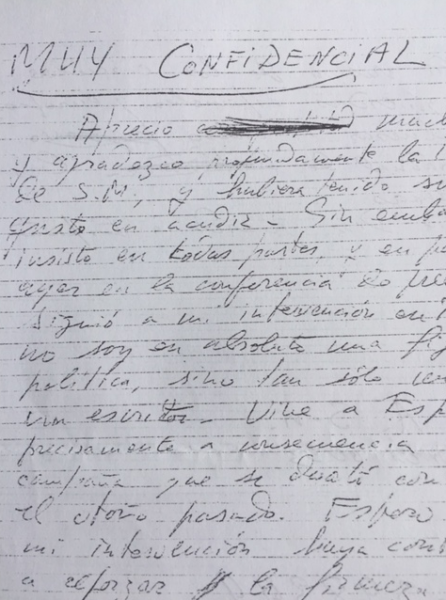 MUY CONFIDENCIAL
Aprecio much
y agradezco profundamente la
de S.M., y hubiera tenido su
gusto en acudir. Sin emb
insisto en todas partes, y en pa
ayer en la conferencia de pre
siguió a mi intervención en
no soy en absoluto una fig
política, sino tan sólo un
un escritor. Vine a Esp
precisamente a consecuencia
campaña que se desató con
el otoño pasado. Espero
mi intervención haya cont
a reforzar la firmez